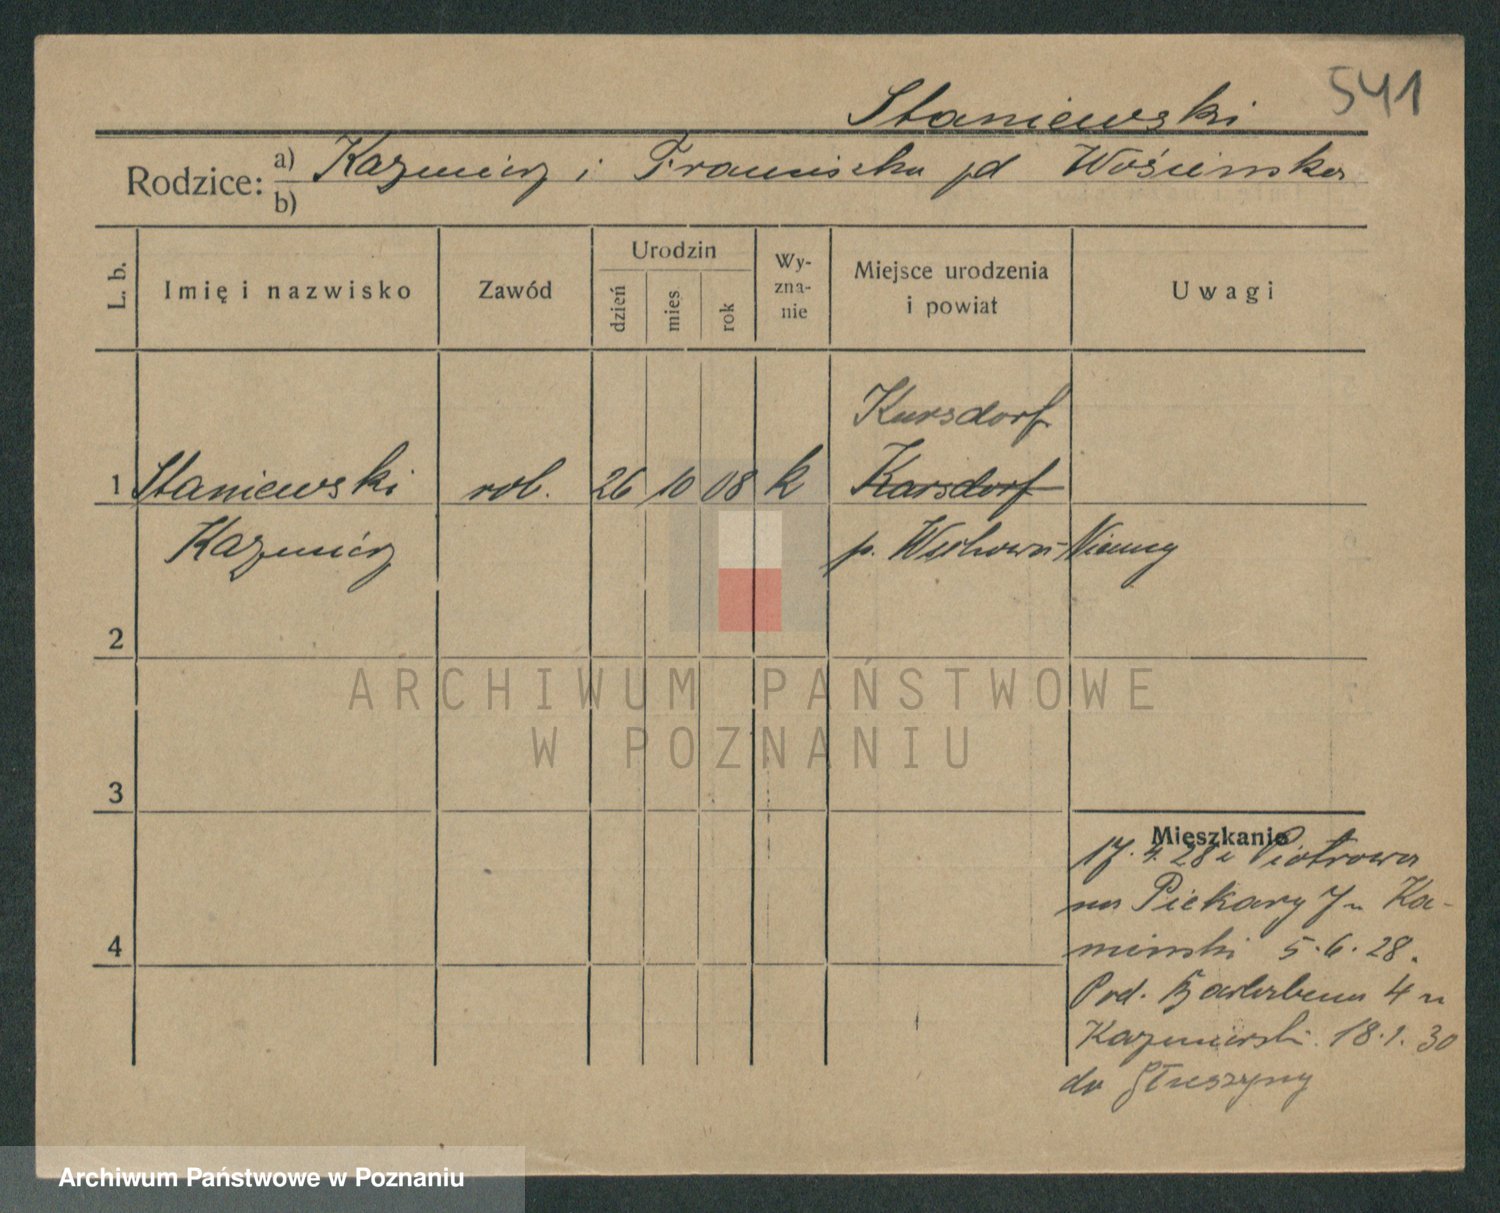 541
Staniewski
Rodzice: a) Kazmierz i Franciszka pd Wośinska
b)
L. b. Imię i nazwisko Zawód Urodzin dzień mies rok Wy-zna-nie Miejsce urodzenia i powiat Uwagi
Kursdorf
1 Staniewski rob. 26 10 08 k Karsdorf
Kazmierz p. Wschowa-Niemcy
2
ARCHIWUM PAŃSTWOWE
W POZNANIU
3
Mieszkanie
17.4.28 z Piotrowa
na Piekary 7 u Ka-
minski 5.6.28.
Pod. 4 u
Kazmierski. 18.1.30
do Głuszyny
4
Archiwum Państwowe w Poznaniu